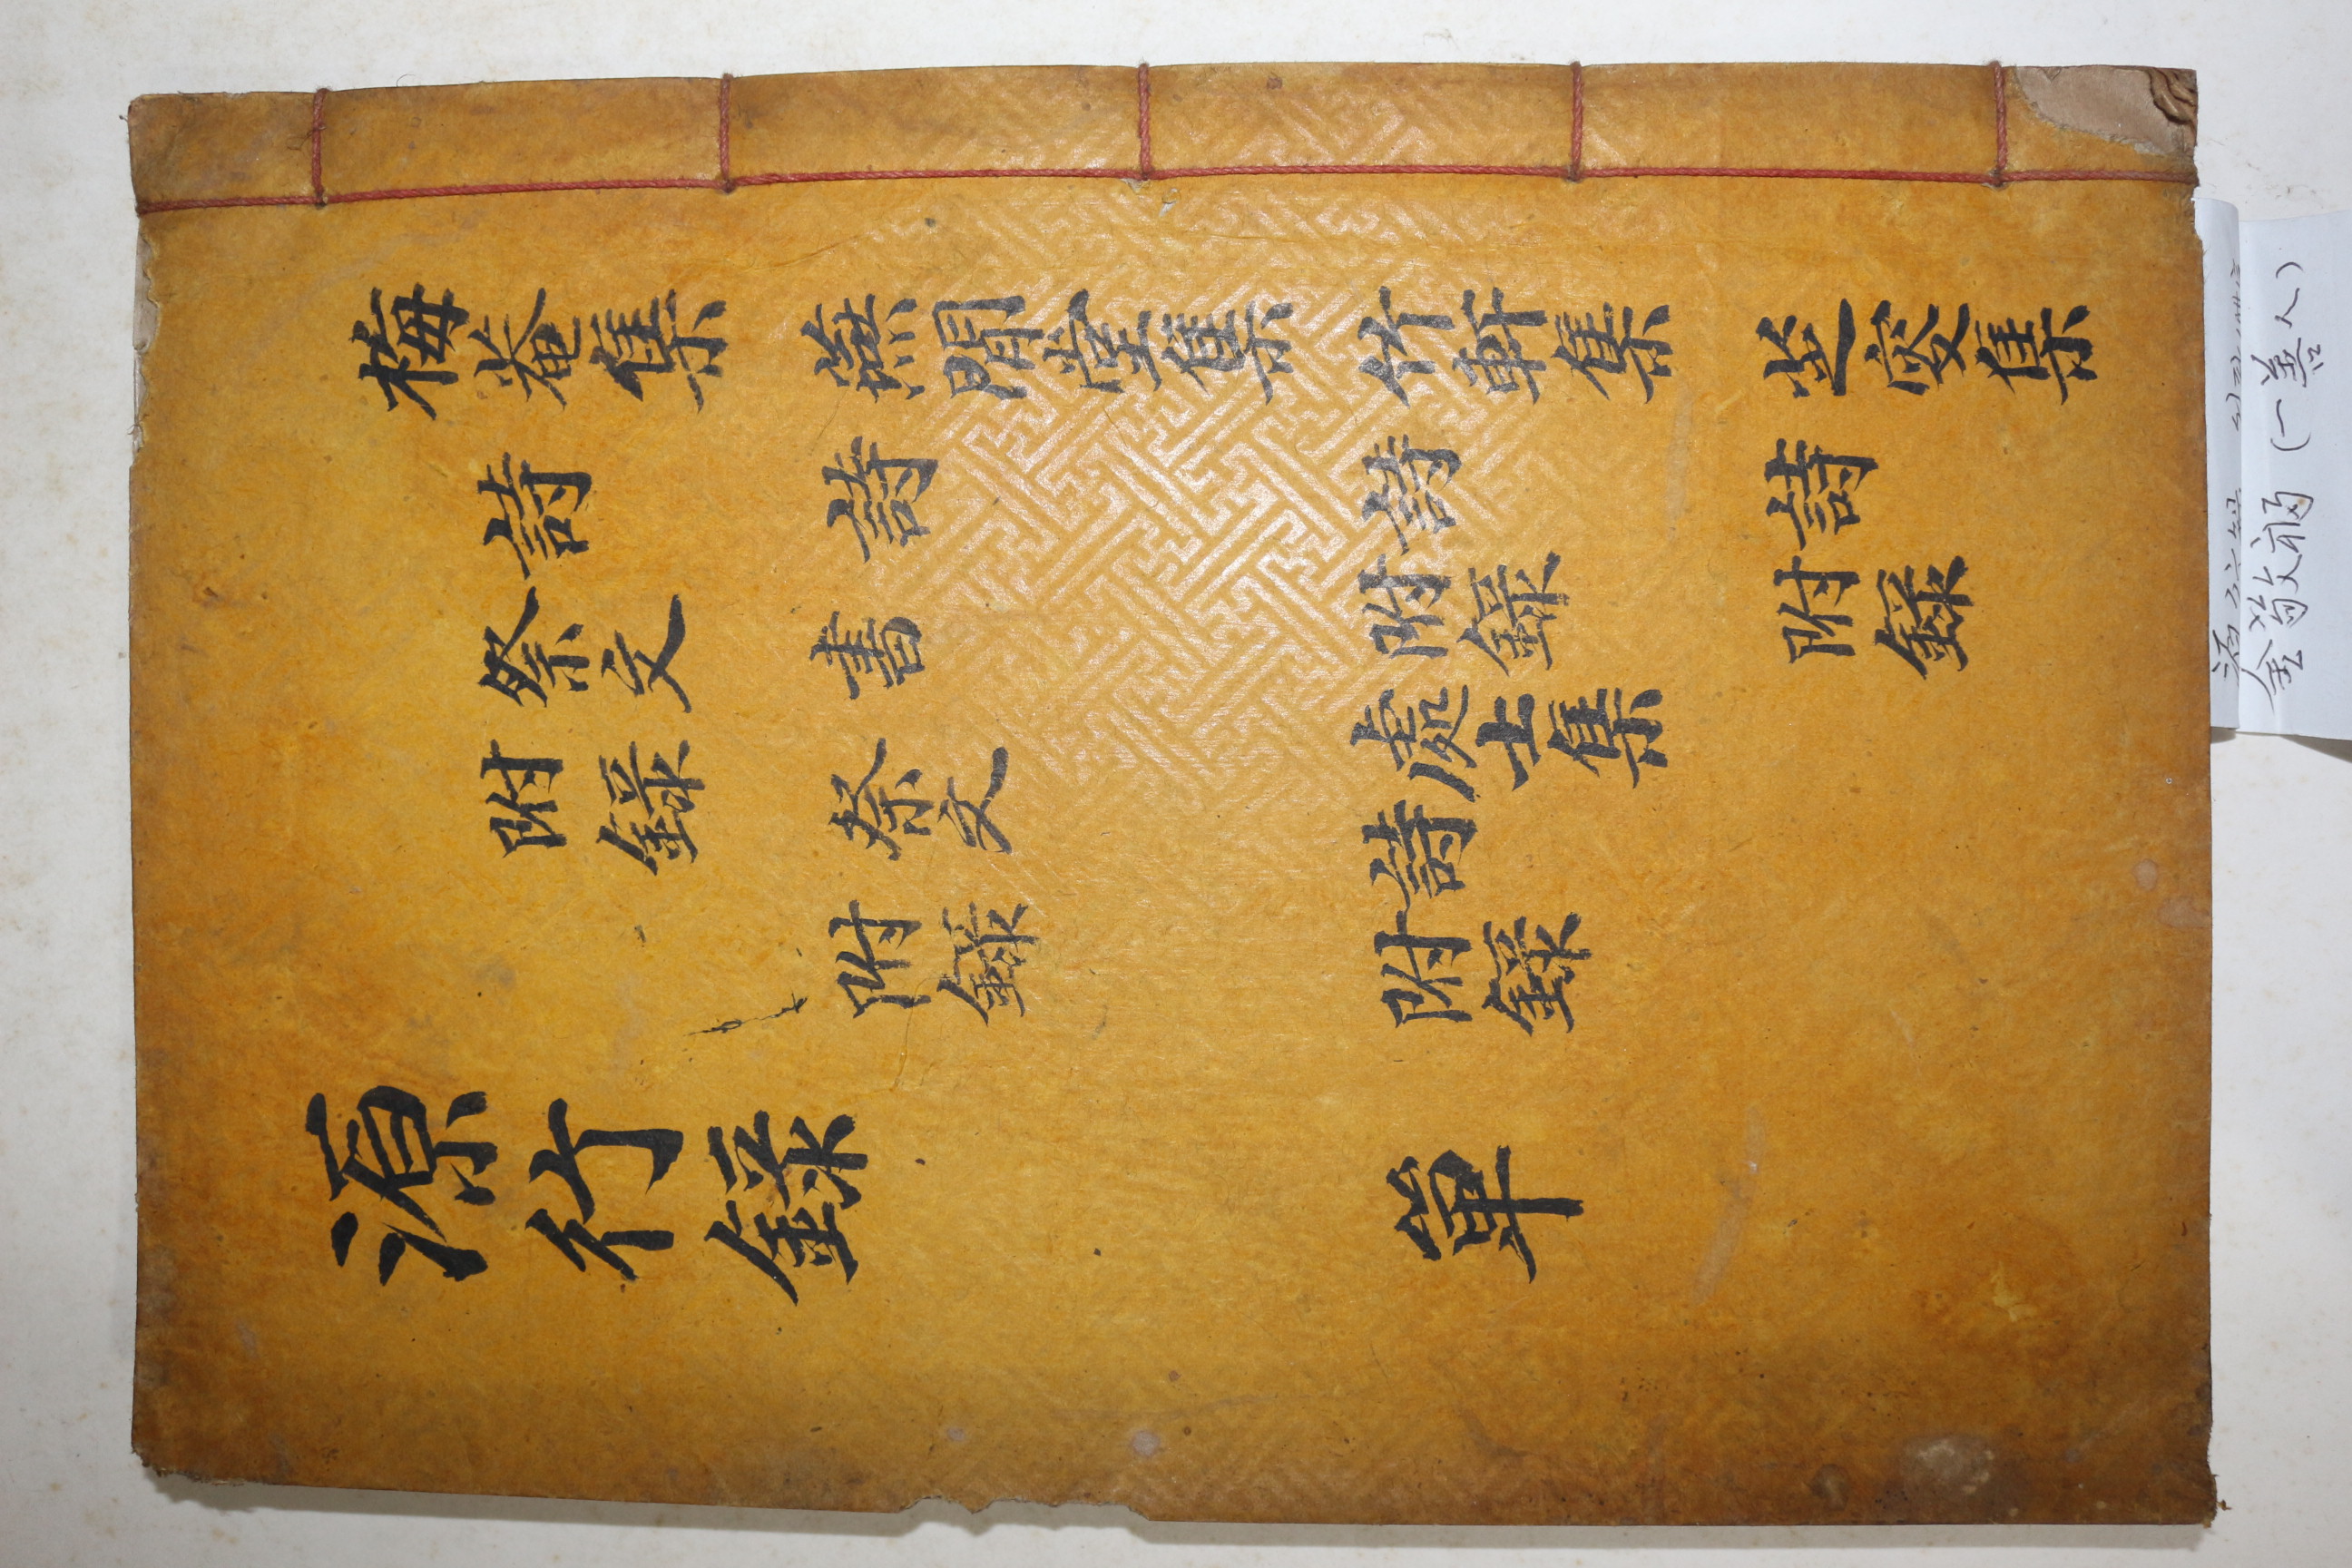 梅菴集
詩
祭文
附錄
蕪閒堂集
詩
書
祭文
附錄
竹軒集
詩
附錄
處士集
詩
附錄
芝叟集
詩
附錄
源行錄
單
金敬 (一善人)